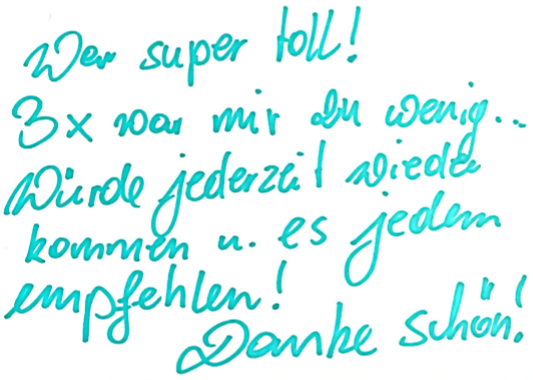 War super toll!
3x war mir zu wenig...
Würde jederzeit wieder
kommen u. es jedem
empfehlen!
Danke schön!